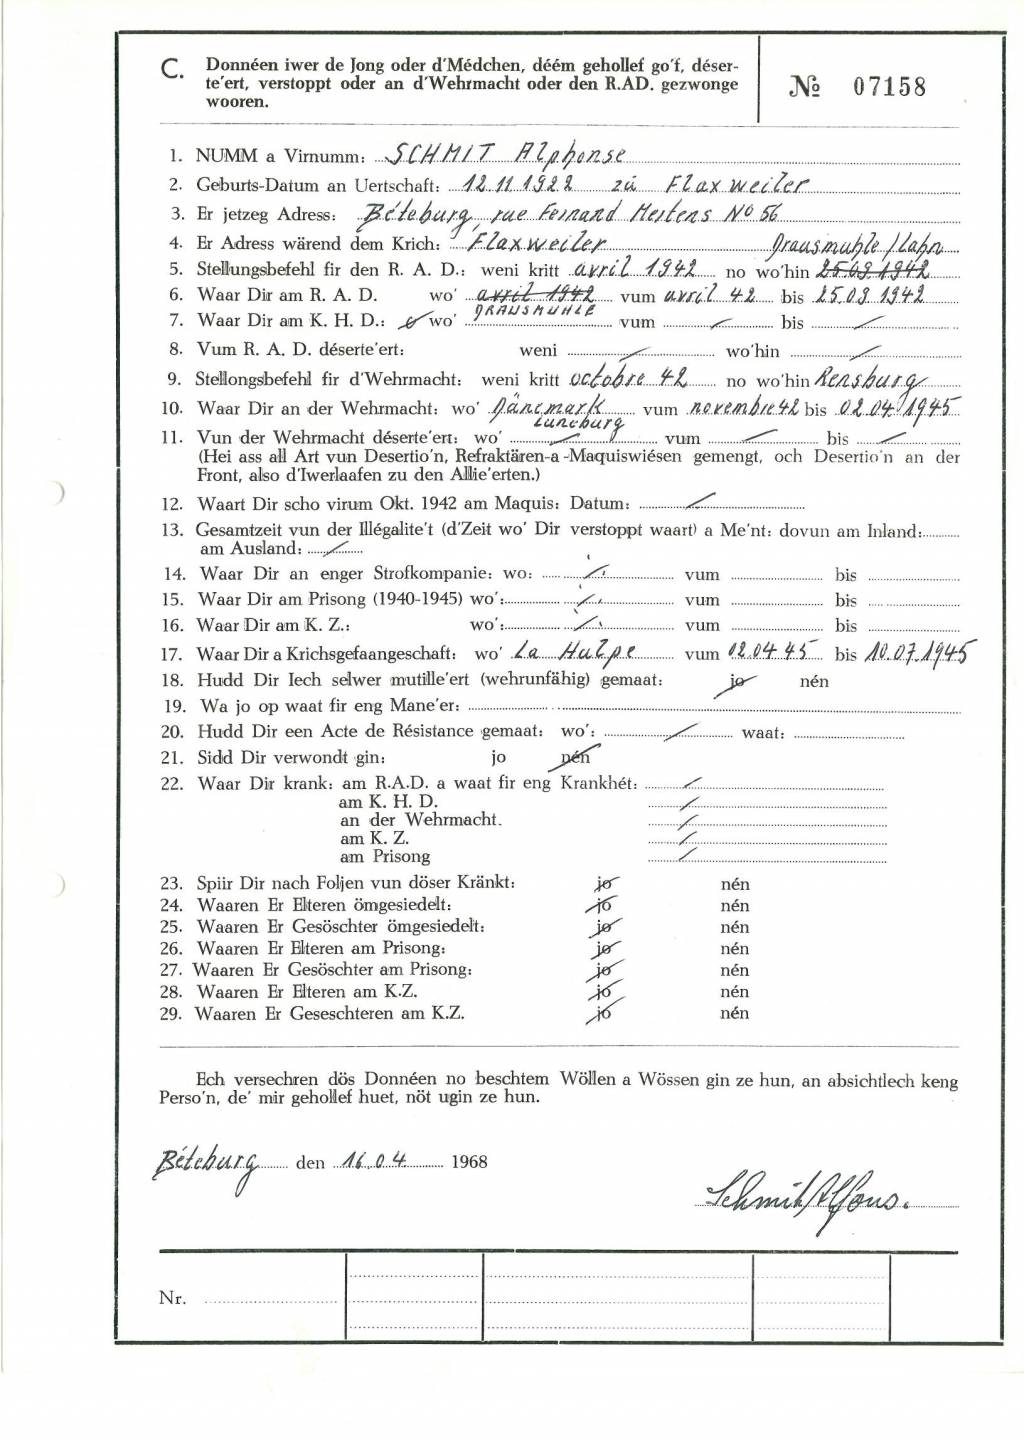 C. Donnéen iwer de Jong oder d'Médchen, déém gehollef go'f, déser-
te'ert, verstoppt oder an d'Wehrmacht oder den R.AD. gezwonge
wooren.
№ 07158
1. NUMM a Virnumm: SCHMIT Alphonse
2. Geburts-Datum an Uertschaft: 12.11.1922 zu Flaxweiler
3. Er jetzeg Adress: Béteburg, rue Fernand Mertens No 56
4. Er Adress wärend dem Krich: Flaxweiler Grausmuhle/Lahn
5. Stellungsbefehl fir den R. A. D.: weni kritt avril 1942 no wo'hin 25.09.1942
6. Waar Dir am R. A. D. wo' avril 1942 vum avril 42 bis 25.09.1942
GRAUSMUHLE
7. Waar Dir am K. H. D.: wo' vum bis
8. Vum R. A. D. déserte'ert: weni wo'hin
9. Stellongsbefehl fir d'Wehrmacht: weni kritt octobre 42 no wo'hin Rensburg
10. Waar Dir an der Wehrmacht: wo' Dänemark vum novembre 42 bis 02.04.1945
Luneburg
11. Vun der Wehrmacht déserte'ert: wo' vum bis
(Hei ass all Art vun Desertio'n, Refraktären-a-Maquiswiésen gemengt, och Desertio'n an der
Front, also d'Iwerlaafen zu den Allie'erten.)
12. Waart Dir scho virum Okt. 1942 am Maquis: Datum:
13. Gesamtzeit vun der Illégalite't (d'Zeit wo' Dir verstoppt waart) a Me'nt: dovun am Inland:
am Ausland:
14. Waar Dir an enger Strofkompanie: wo: vum bis
15. Waar Dir am Prisong (1940-1945) wo': vum bis
16. Waar Dir am K. Z.: wo': vum bis
17. Waar Dir a Krichsgefaangeschaft: wo' La Hulpe vum 02.04.45 bis 10.07.1945
18. Hudd Dir Iech selwer mutille'ert (wehrunfähig) gemaat: jo nén
19. Wa jo op waat fir eng Mane'er:
20. Hudd Dir een Acte de Résistance gemaat: wo': waat:
21. Sidd Dir verwondt gin: jo nén
22. Waar Dir krank: am R.A.D. a waat fir eng Krankhét:
am K. H. D.
an der Wehrmacht.
am K. Z.
am Prisong
23. Spiir Dir nach Foljen vun döser Kränkt: jo nén
24. Waaren Er Elteren ömgesiedelt: jo nén
25. Waaren Er Gesöschter ömgesiedelt: jo nén
26. Waaren Er Elteren am Prisong: jo nén
27. Waaren Er Gesöschter am Prisong: jo nén
28. Waaren Er Elteren am K.Z. jo nén
29. Waaren Er Geseschteren am K.Z. jo nén
Ech versechren dös Donnéen no beschtem Wöllen a Wössen gin ze hun, an absichtlech keng
Perso'n, de' mir gehollef huet, nöt ugin ze hun.
Béteburg den 16.04. 1968
Schmit Alfons.
Nr.